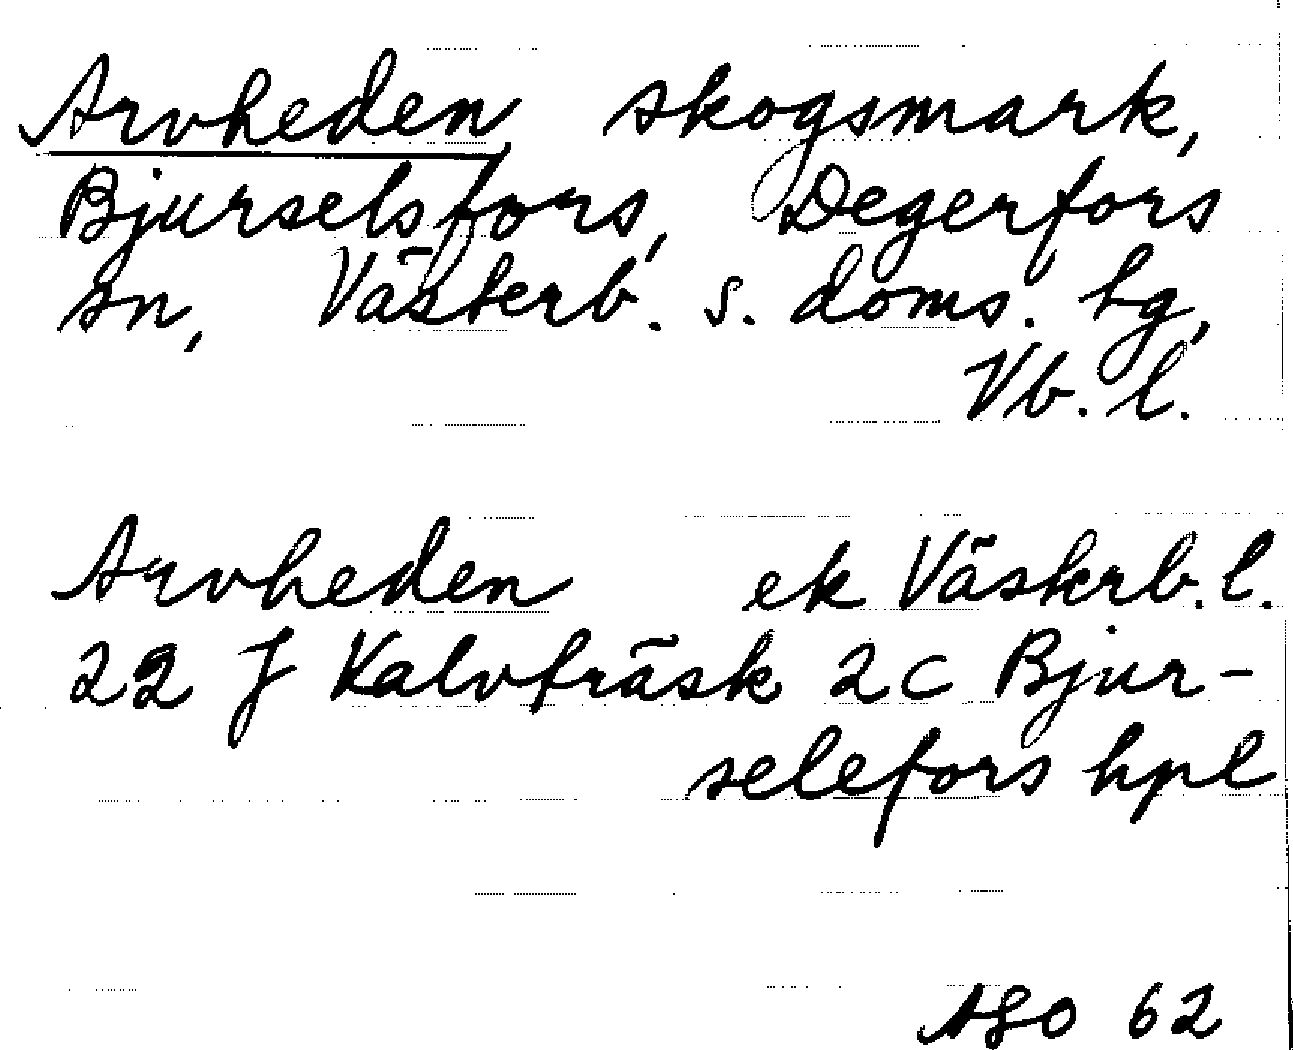 Arvheden skogsmark,
Bjurselsfors, Degerfors
sn, Västerb. s. doms. hg,
Vb. l.
Arvheden ek Västerb. l.
22 J Kalvträsk 2c Bjur-
selefors hpl
ASO 62